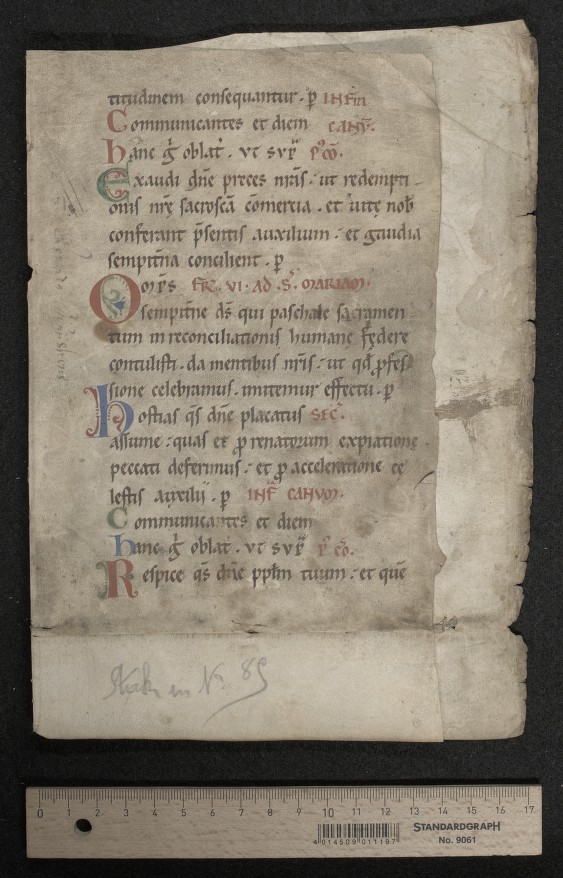 titudinem consequantur. p INFRA
Communicantes et diem CANN̄.
hanc ḡ oblat̄. vt svp̄ P̄ CŌ.
Exaudi dn̄e preces nr̄as. ut redempti-
onis nrę̄ sacroscā cōmercia. et uitę nob̄
conferant p̄sentis auxilium. et gaudia
sempit̄na concilient. p̄
Omp̄s FR̄. VI. AD S̄. MARIAM.
sempit̄ne ds̄ qui paschale sacramen
tum in reconciliationis humane fędere
contulisti. da mentibus nr̄is. ut qd̄ p̄fes
sione celebramus. imitemur effectu. p̄
hostias qs̄ dn̄e placatus SEC̄.
assume. quas et ꝓ renatorum expiatione
peccati deferimus. et ꝓ acceleratione ce
lestis auxilii. p̄ INF̄ CANON.
Communicantes et diem
hanc ḡ oblat̄. vt svp̄ P̄ CŌ.
Respice qs̄ dn̄e pplm̄ tuum. et quē
N. 85
0 1 2 3 4 5 6 7 8 9 10 11 12 13 14 15 16 17
4 014509 011197
STANDARDGRAPH
No. 9061